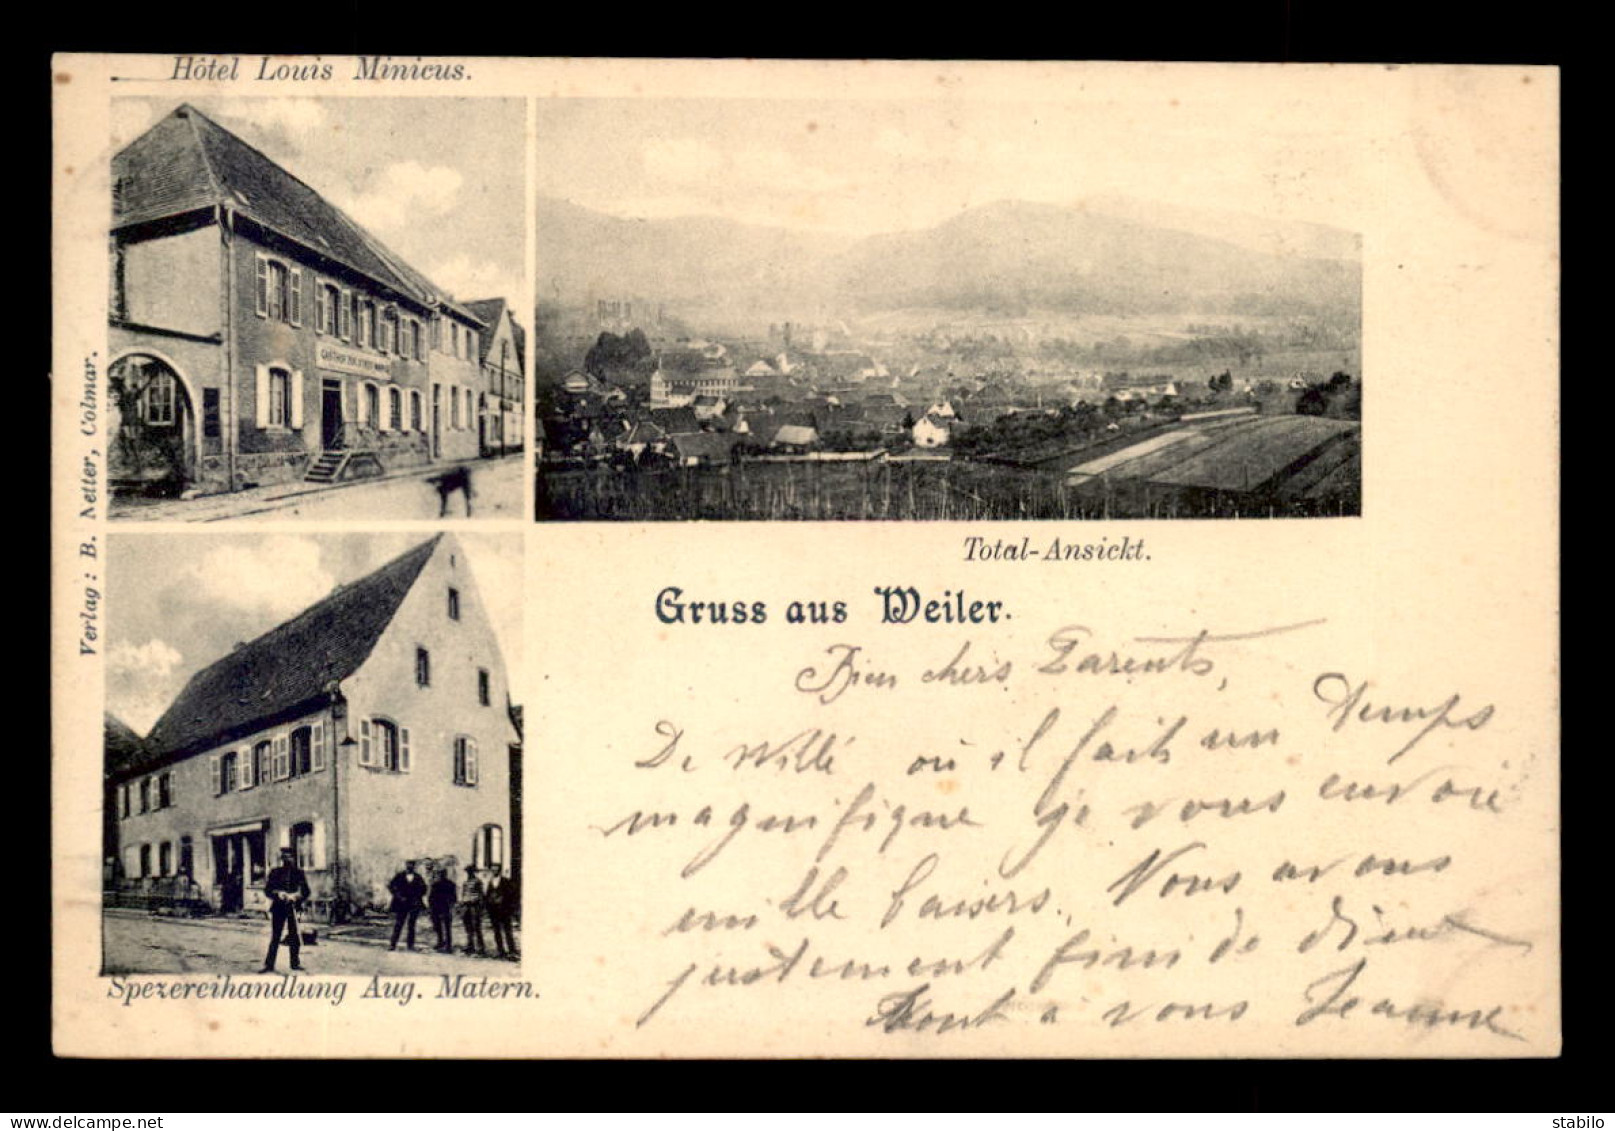 Hôtel Louis Minicus.
GASTHOF ZUR
Verlag: B. Netter, Colmar.
Total-Ansickt.
Gruss aus Weiler.
Bien chers Parents,
De Willé où il fait un temps
magnifique je vous envoie
mille baisers. Nous avons
justement fini de diner
tout a vous Jeanne
Spezereihandlung Aug. Matern.
delcampe.net
stabilo